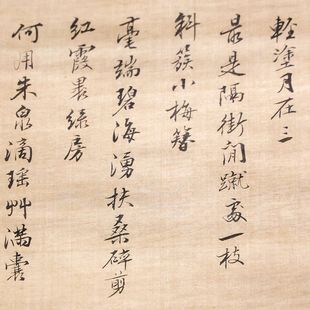 輕塗月在三
最是隔街閒蹴處一枝
斜簇小梅簪
毫端碧海湧扶桑碎剪
紅霞畏綠房
何用朱泉滴瑤艸滿囊